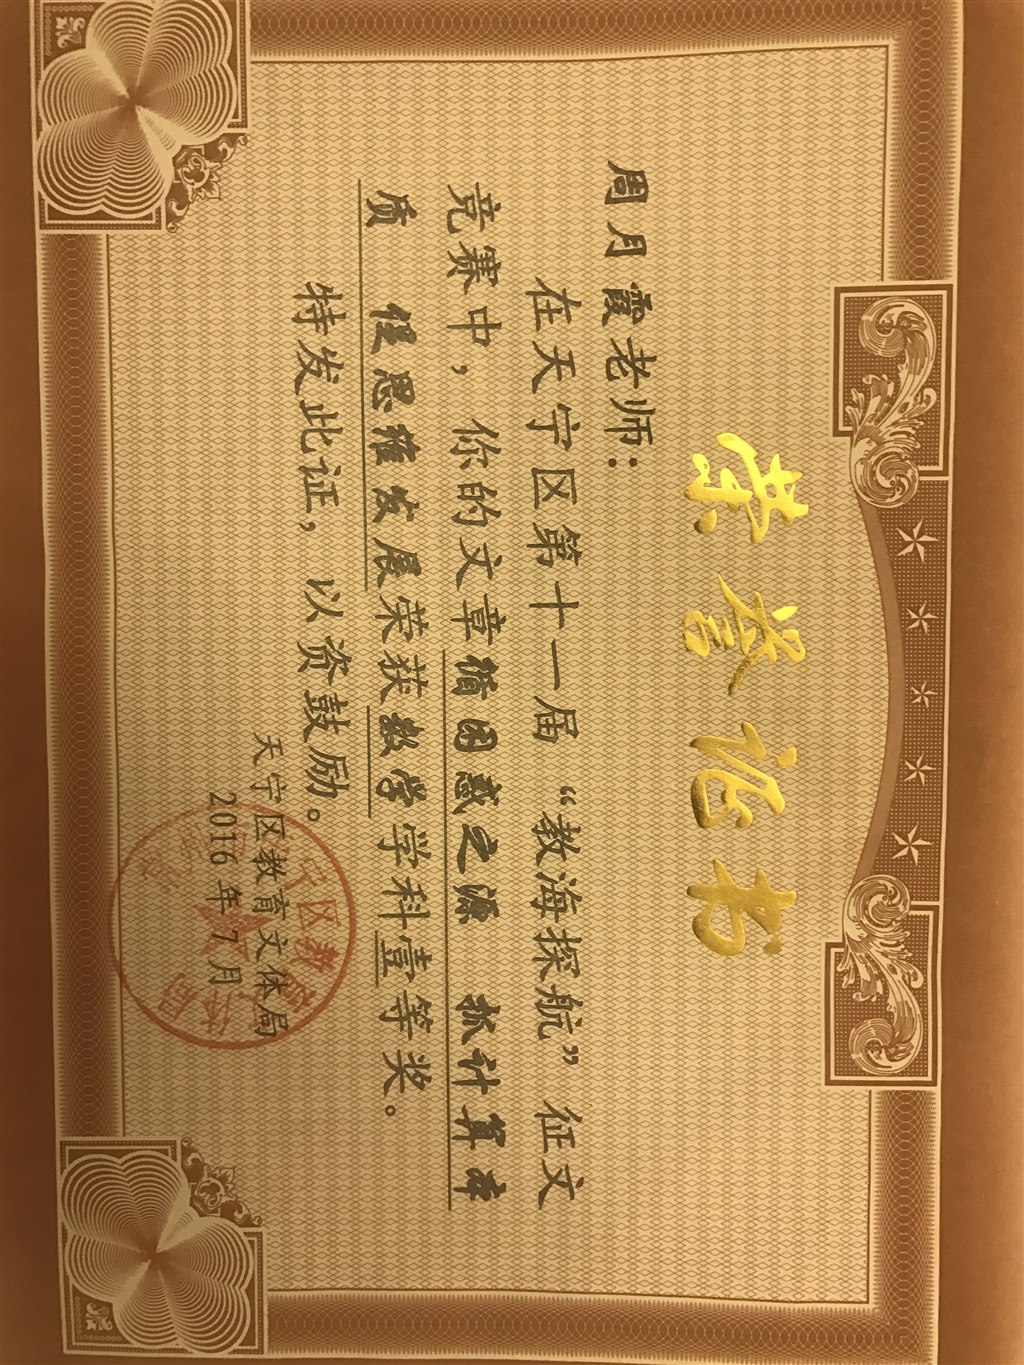 荣誉证书
周月霞老师：
在天宁区第十一届“教海探航”征文
竞赛中，你的文章循困惑之源 抓计算本
质 促思维发展荣获数学学科壹等奖。
特发此证，以资鼓励。
天宁区教育文体局
2016年7月